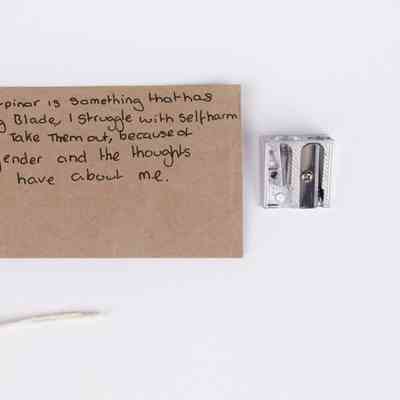 -pinar is something that has
g Blade, I struggle with selfharm
Take Them out, because of
ender and the thoughts
have about me.